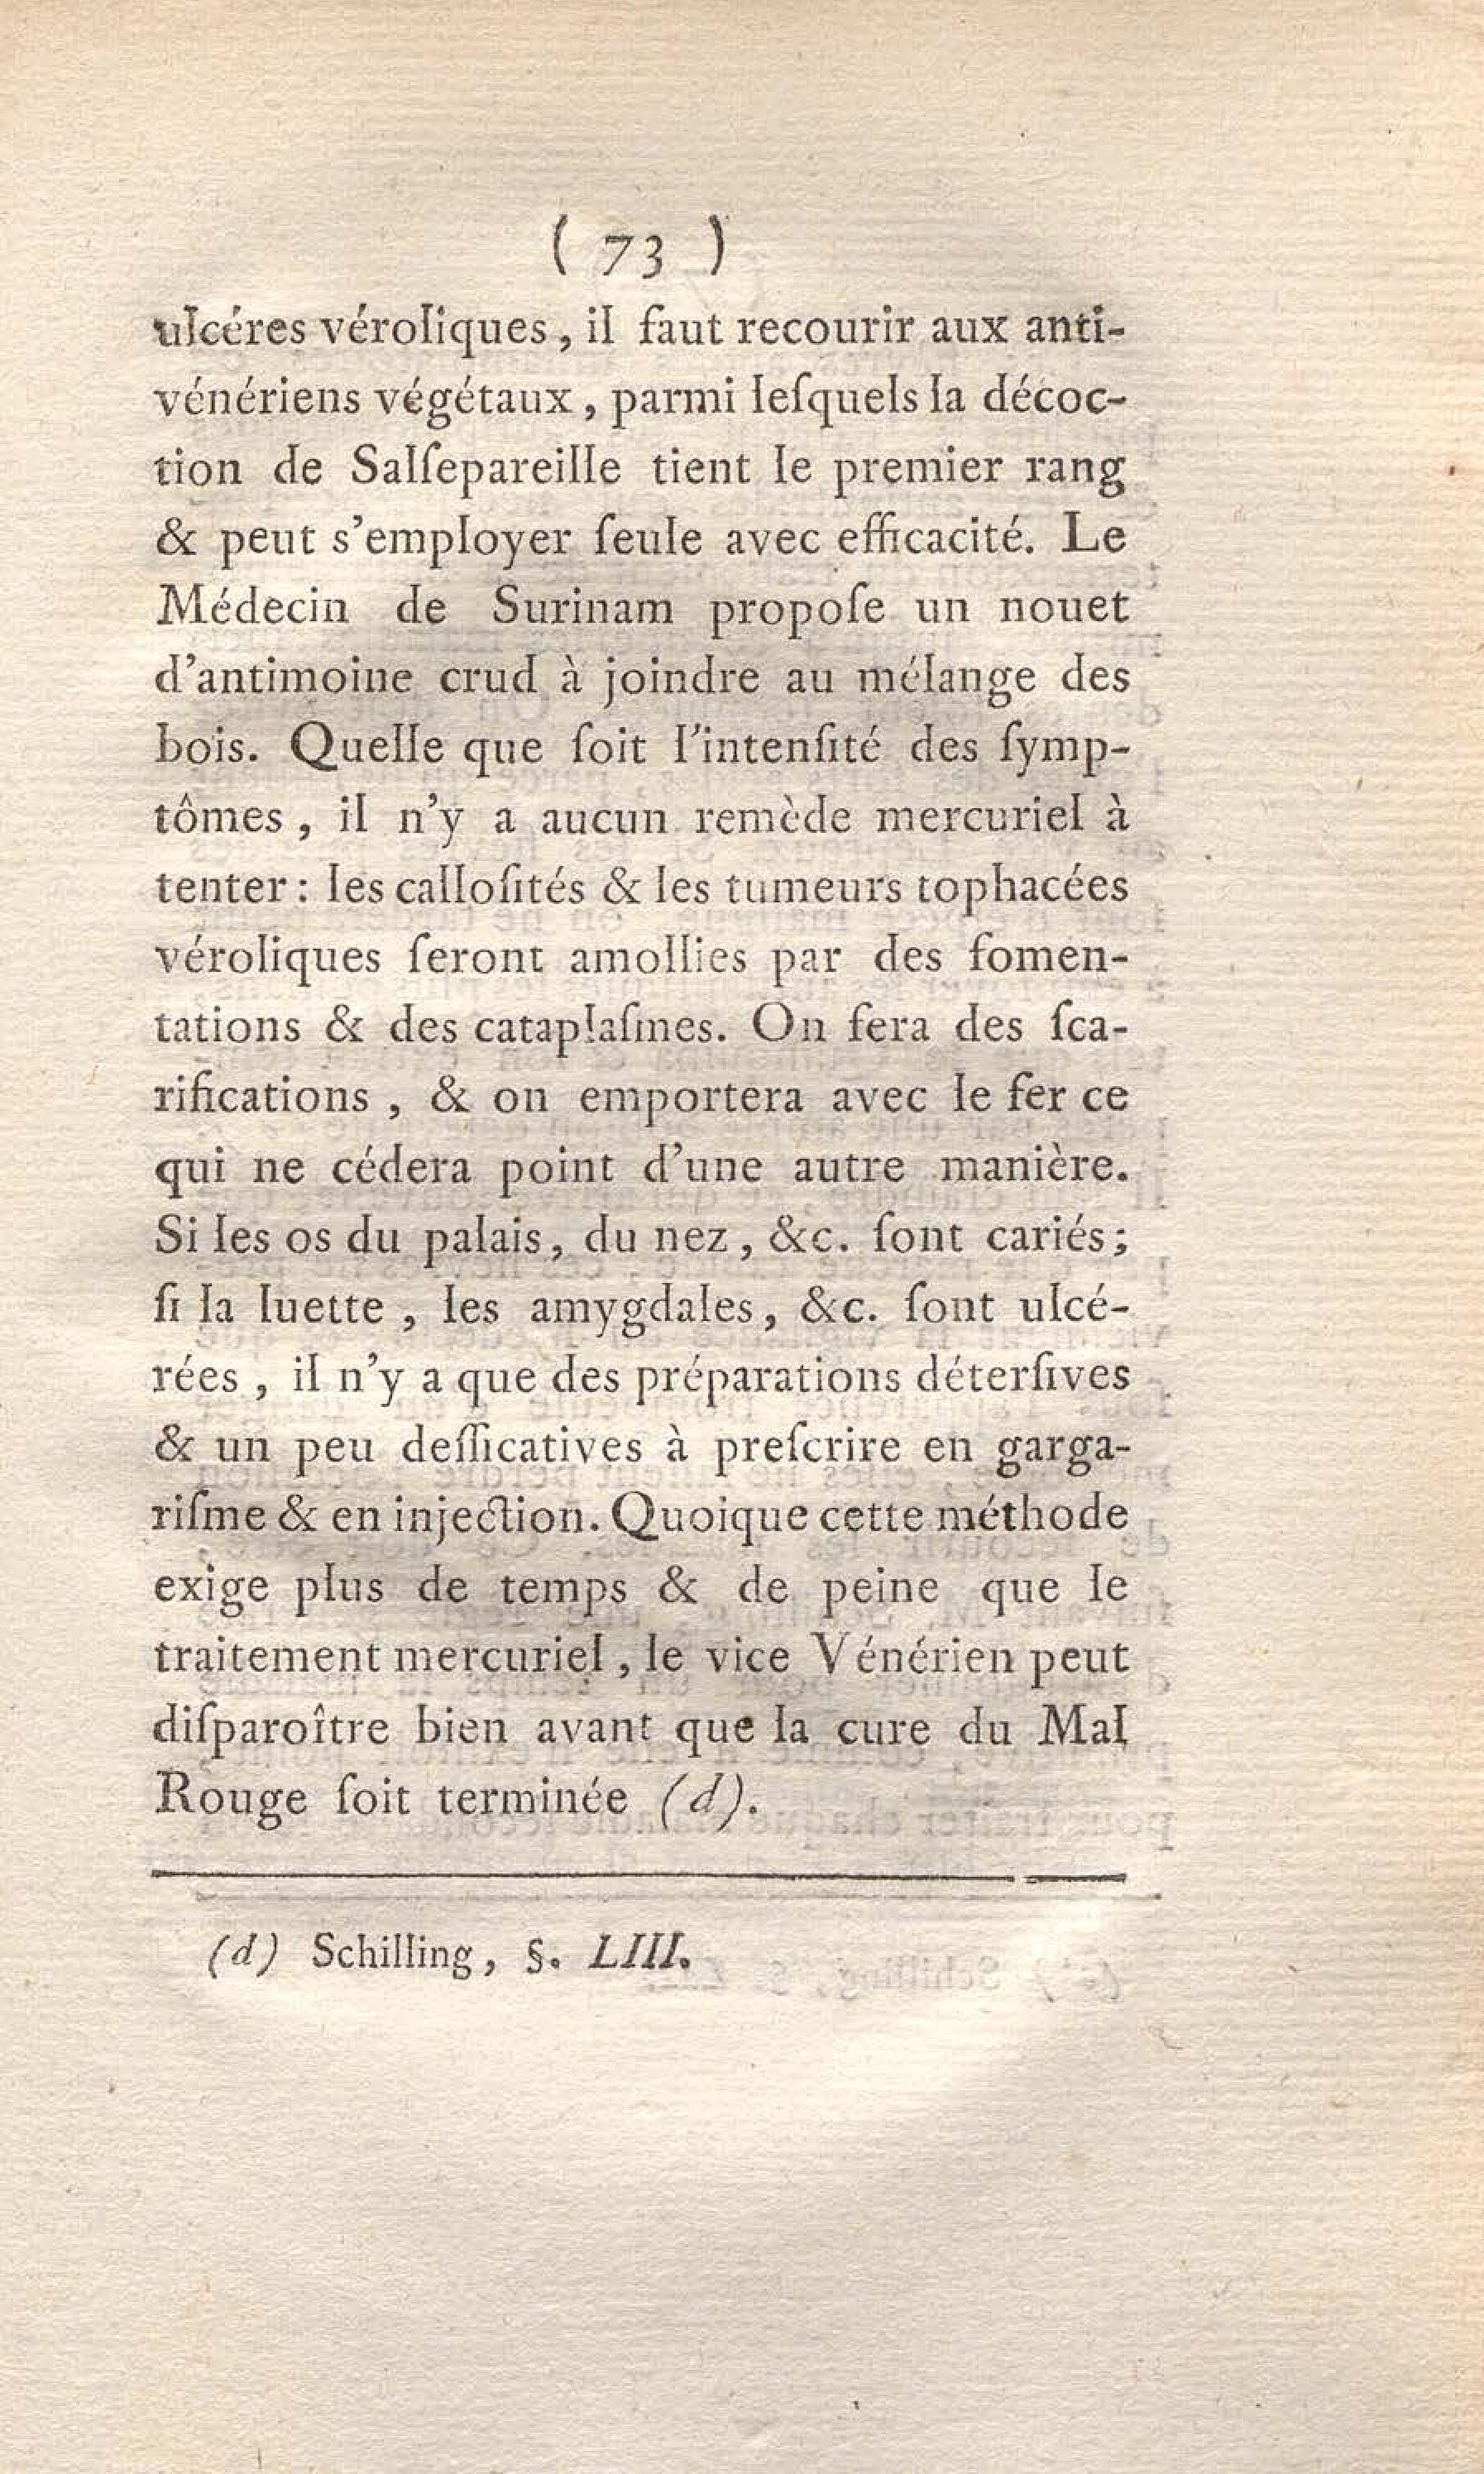 ( 73 )
ulcéres véroliques, il faut recourir aux anti-
vénériens végétaux, parmi leſquels la décoc-
tion de Salſepareille tient le premier rang
& peut s'employer ſeule avec efficacité. Le
Médecin de Surinam propoſe un nouet
d'antimoine crud à joindre au mélange des
bois. Quelle que ſoit l'intenſité des ſymp-
tômes, il n'y a aucun remède mercuriel à
tenter : les calloſités & les tumeurs tophacées
véroliques ſeront amollies par des fomen-
tations & des cataplaſmes. On fera des ſca-
rifications, & on emportera avec le fer ce
qui ne cédera point d'une autre manière.
Si les os du palais, du nez, &c. ſont cariés;
ſi la luette, les amygdales, &c. ſont ulcé-
rées, il n'y a que des préparations déterſives
& un peu deſſicatives à preſcrire en garga-
riſme & en injection. Quoique cette méthode
exige plus de temps & de peine que le
traitement mercuriel, le vice Vénérien peut
diſparoître bien avant que la cure du Mal
Rouge ſoit terminée (d).
(d) Schilling, §. LIII.